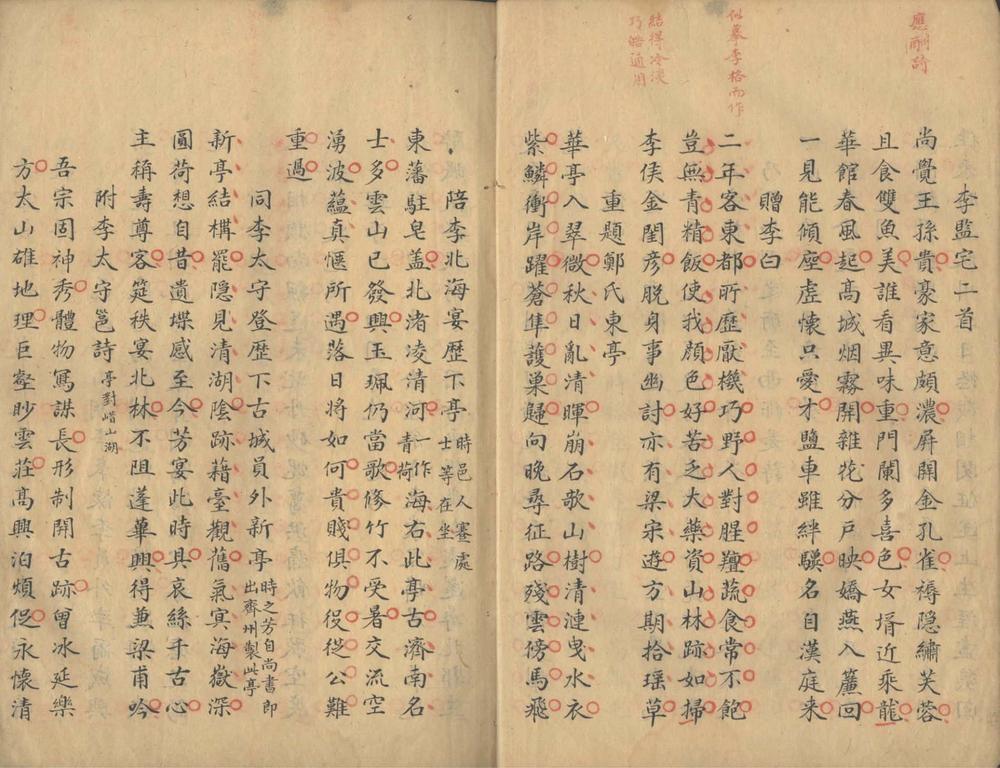 應酬詩
似摹李格而作
結得冷淡
巧皓通用
李監宅二首
尚覺王孫貴豪家意頗濃屏開金孔雀褥隱繡芙蓉
且食雙魚美誰看異味重門闌多喜色女壻近乘龍
華館春風起高城烟霧開雜花分戶映嬌燕入簾回
一見能傾座虛懷只愛才鹽車雖絆驥名自漢庭来
贈李白
二年客東都所歷厭機巧野人對腥羶蔬食常不飽
豈無青精飯使我顏色好苦乏大藥資山林跡如掃
李侯金閨彦脱身事幽討亦有梁宋遊方期拾瑶草
重題鄭氏東亭
華亭入翠微秋日亂清暉崩石歌山樹清漣曳水衣
紫鱗衝岸躍蒼隼護巢歸向晚尋征路殘雲傍馬飛
陪李北海宴歷下亭 時邑人蹇處士等在坐
東藩駐皂盖北渚凌清河 一作青荷 海右此亭古濟南名
士多雲山已發興玉珮仍當歌修竹不受暑交流空
湧波蘊真愜所遇落日將如何貴賤俱物役從公難
重過
同李太守登歷下古城員外新亭 時之芳自尚書郎出齊州製此亭
新亭結構罷隱見清湖陰跡籍臺觀舊氣冥海嶽深
圓荷想自昔遺堞感至今芳宴此時具哀絲千古心
主稱壽尊客筵秩宴北林不阻蓬蓽興得兼梁甫吟
附李太守邕詩 亭對㟙山湖
吾宗固神秀體物寫謀長形制開古跡曾冰延樂
方太山雄地理巨壑眇雲莊高興泊煩促永懷清